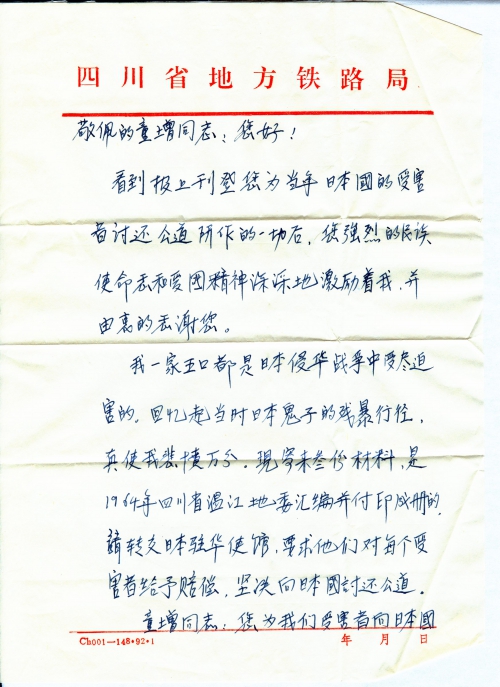 四川省地方铁路局
敬佩的童增同志：您好！
看到报上刊登您为当年日本國的受害
者讨还公道所作的一切后，您强烈的民族
使命和爱國精神深深地激励着我，并
由衷的感谢您。
我一家五口都是日本侵华战争中受尽迫
害的。回忆起当时日本鬼子的残暴行径，
真使我悲愤万分。現寄来叁份材料，是
1964年四川省温江地委汇编并付印成册的。
請转交日本驻华使馆，要求他们对每个受
害者给予赔偿，坚决向日本國討还公道。
童增同志：您为我们受害者向日本國
Ch001—148·92·1 年 月 日